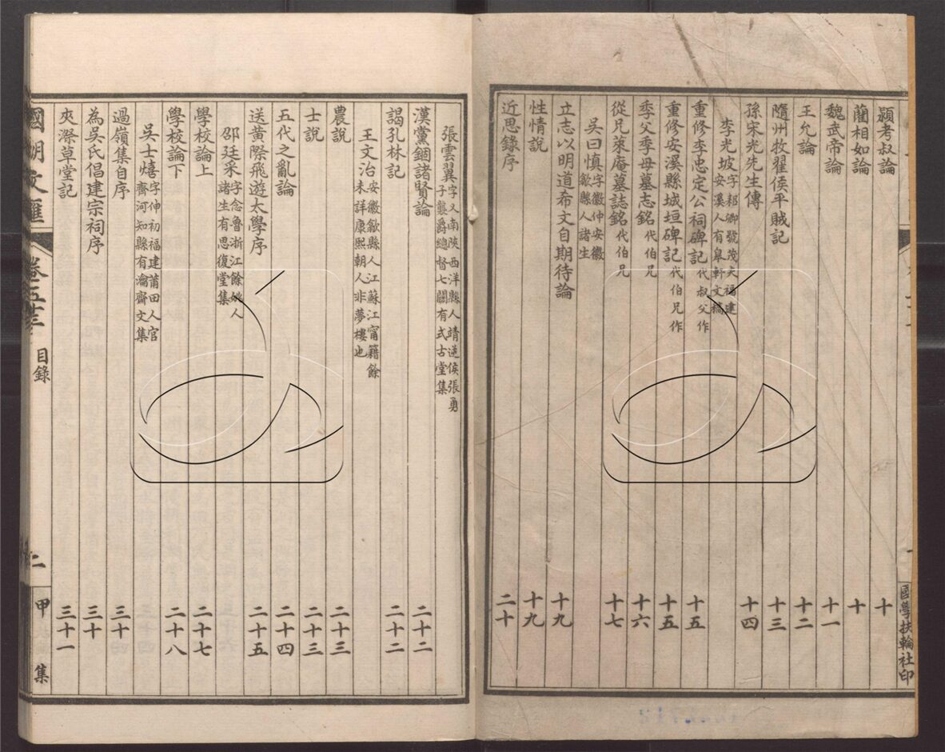 潁考叔論 十
藺相如論 十
魏武帝論 十一
王允論 十二
隨州牧翟侯平賊記 十三
孫宋光先生傳 十四
李光坡 字耜卿號茂夫福建安溪人有皋軒文編
重修李忠定公祠碑記 代叔父作 十五
重修安溪縣城垣碑記 代伯兄作 十五
季父季母墓志銘 代伯兄 十六
從兄來庵墓誌銘 代伯兄 十七
吳曰慎 字徽仲安徽歙縣人諸生
立志以明道希文自期待論 十九
性情說 十九
近思錄序 二十
國學扶輪社印
張雲翼 字又南陝西洋縣人靖逆侯張勇子襲爵總督七關有式古堂集
漢黨錮諸賢論 二十二
謁孔林記 二十二
王文治 安徽歙縣人江蘇江甯籍餘未詳康熙朝人非夢樓也
農說 二十三
士說 二十三
五代之亂論 二十四
送黃際飛遊太學序 二十五
邵廷采 字念魯浙江餘姚人諸生有思復堂集
學校論上 二十七
學校論下 二十八
吳士熺 字仲初福建莆田人官齊河知縣有瀹齋文集
過嶺集自序 三十
為吳氏倡建宗祠序 三十
夾漈草堂記 三十一
國朝文匯 卷五十三 目錄 二 甲集